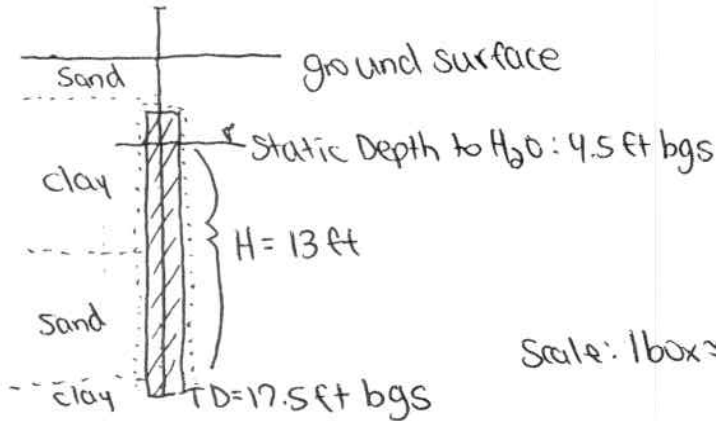 ground surface
Sand
Static Depth to H₂O: 4.5 ft bgs
clay
H = 13 ft
Sand
Scale: 1 box =
clay
TD = 17.5 ft bgs